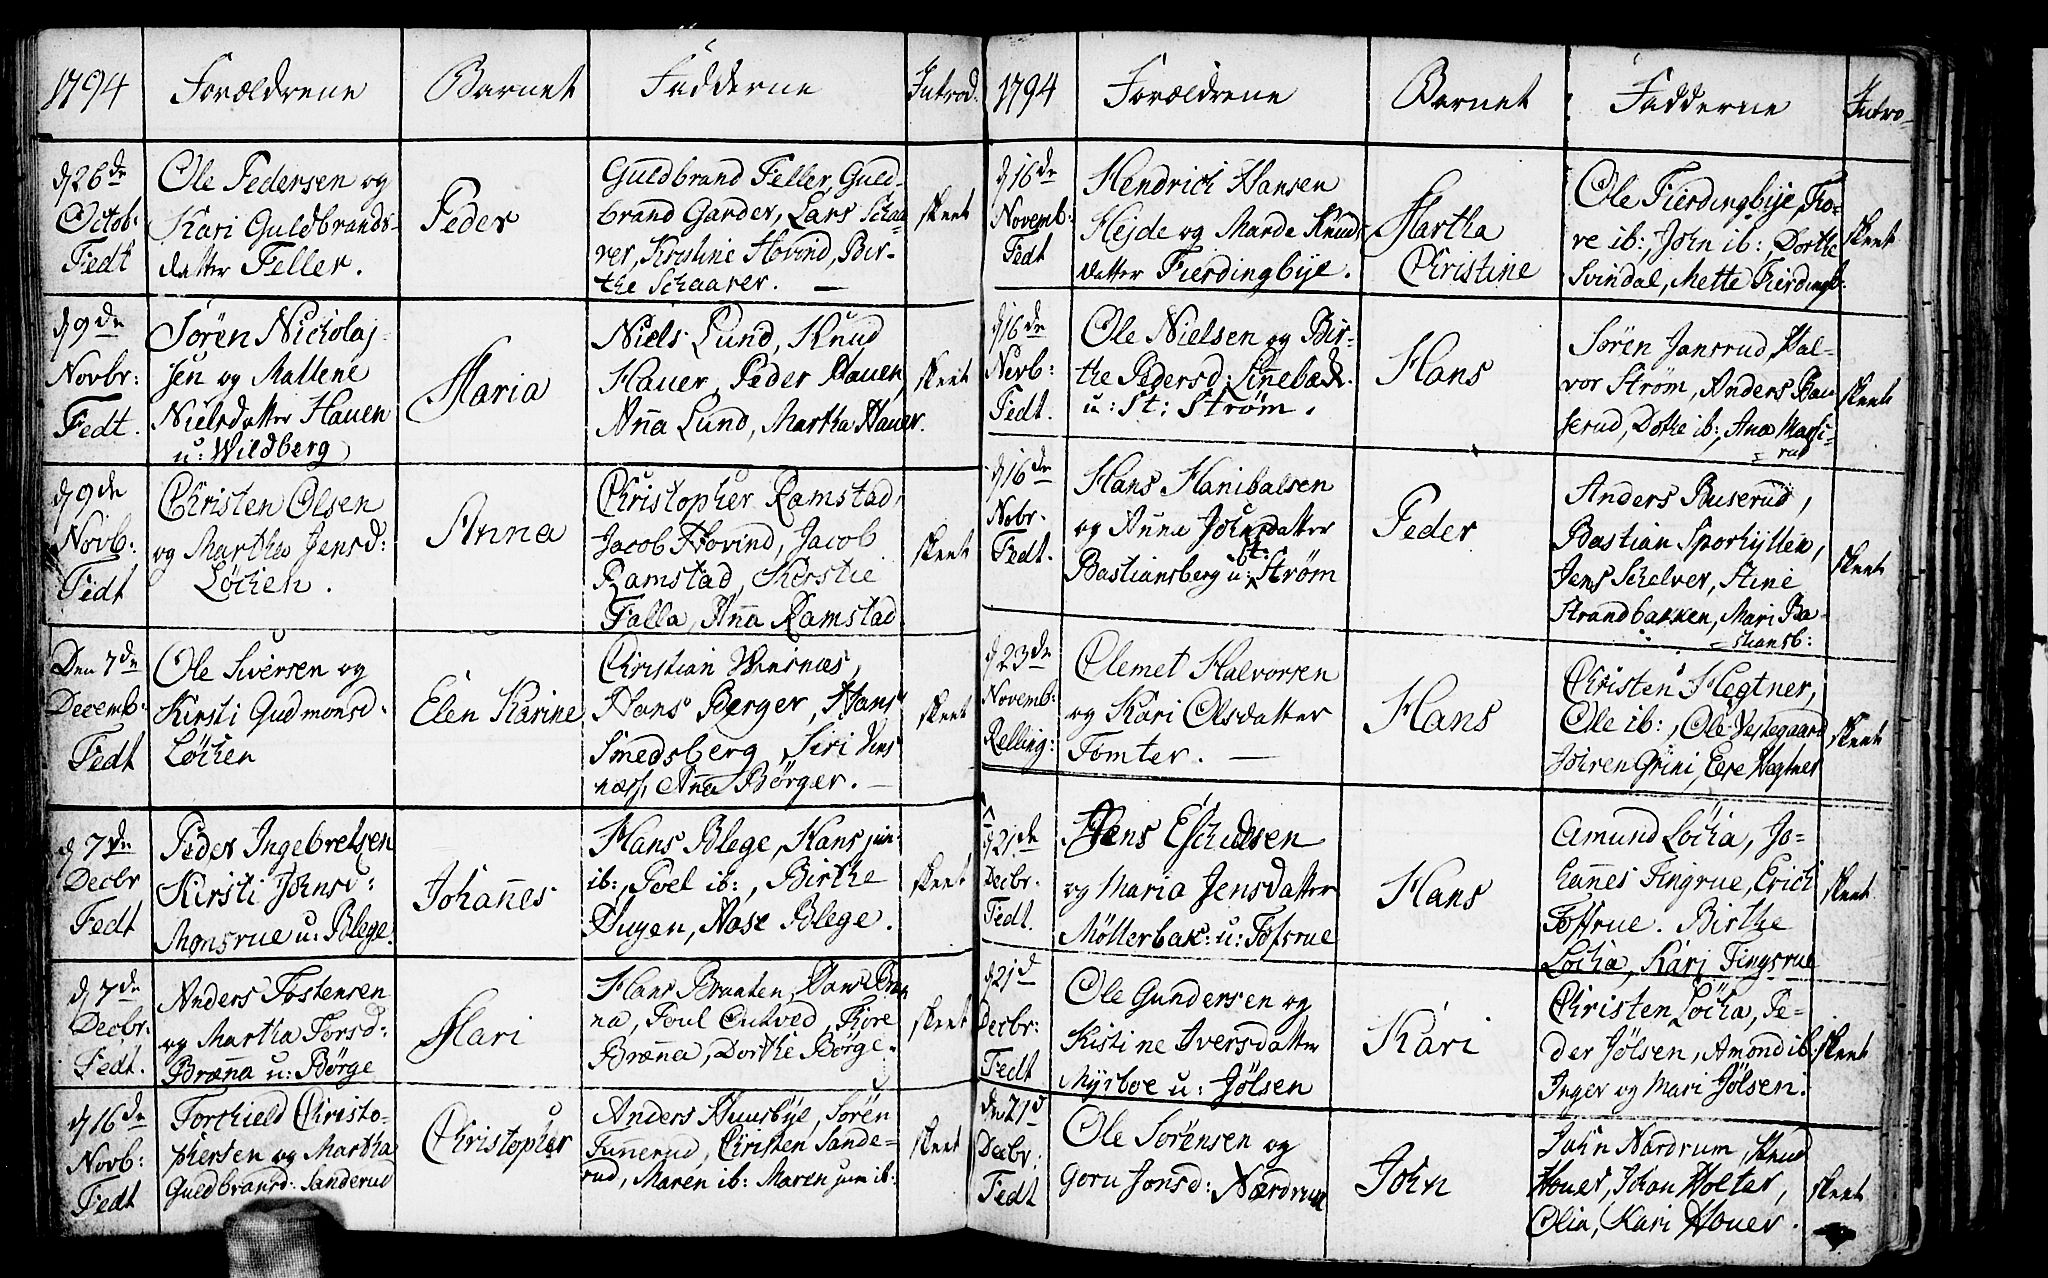 1794 Forældrene Barnet Fadderne Introd.
d 26de Octob: Fedt
Ole Pedersen og
Kari Guldbrands-
datter Feller.
Peder
Guldbrand Feller, Guld-
brand Garder, Lars Schaa
rer, Kirstine Hovind, Bir-
the Schaarer. —
skeet
d 9de Novbr: Fedt.
Sören Nicholaj-
sen og Mallene
Nielsdatter Hauen
u: Wildberg
Maria
Niels Lund, Knud
Hauer, Peder Hauen
Anna Lund, Martha Hauer.
skeet
d 9de Novb: Fedt
Christen Olsen
og Martha Jensd:
Löchen.
Anna
Christopher Ramstad,
Jacob Hovind, Jacob
Ramstad, Kirstie
Falla, Anna Ramstad
skeet
Den 7de Decemb: Fedt
Ole Siversen og
Kirsti Gudmonsd:
Löchen
Elen Karine
Christian Winsnæs,
Hans Berger, Hans
Smedsberg, Siri Vins
næss, Ana Börger. —
skeet
d 7de Decbr Fedt
Peder Ingebretsen
Kirsti Johnsd:
Monsrue u: Blege.
Johannes
Hans Blege, Hans jun:
ib:, Poel ib:, Birthe
Hugen, Aase Blege.
skeet
d 7de Decbr. Fedt.
Anders Tostensen
og Martha Torsd:
Brænna u: Börge
Mari
Hans Braaten, Hans Bræn
na, Poul Tore
Brænna, Dorthe Börge.
skeet
d 16de Novb: Fedt
Torchield Christo-
phersen og Martha
Guldbransd: Sanderud
Christopher
Anders Huusbye, Sören
Tunnerud, Christen Sande-
rud, Maren ib: Maren jun ib:
skeet
1794 Forældrene Barnet Fadderne Intro-
d 16de Novemb: Fedt
Hendrich Hansen
Hejde og Marde Knuds
datter Fierdingbye.
Martha
Christine
Ole Fierdingbye, To-
re ib:, John ib: Dorthe
Svindal, Mette Fierdingb:
skeet
d 16de Novb: Fedt.
Ole Nielsen og Bir-
the Pedersd: Linebæck.
u: St: Ström.
Hans
Sören Jansrud, Hal-
vor Ström, Anders Bu
serud, Dothe ib:, Ana Mansi-
rud
skeet
d 16de Nobr. Fedt.
Hans Hanibalsen
og Anna Johnsdatter
Bastiansberg u: St: Ström
Peder
Anders Buserud,
Bastian Sporhytten,
Jens Schelver, Stine
Strandbakken, Mari Ba-
stiansb:
skeet
d 23de Novemb: Relling:
Clemet Halvorsen
og Kari Olsdatter
Tomter. —
Hans
Christen Hegtner,
Ole ib:, Ole Vestegaard
Jöhren Grini, Hegtner
skeet
d 21de Decbr. Fedt.
Jens
og Maria Jensdatter
Möllerbak: u: Tofsrue
Hans
Amund Löcha, Jo-
hannes Tingrue, Erich
Toffrue. Birthe
Löcha, Kari Tingsrue
skeet
d 21d Decbr: Fedt
Ole Gundersen og
Kistine Iversdatter
Myrboe u: Jölsen
Kari
Christen Löcha, Pe-
der Jölsen, Amond ib:
Inger og Mari Jölsen.
skeet
den 21d Decbr: Fedt
Ole Sörensen og
Goru Jonsd: Nordrum
John
John Nordrum, Knud
Houer, Johan Holter,
Olia, Kari Houer.
skeet